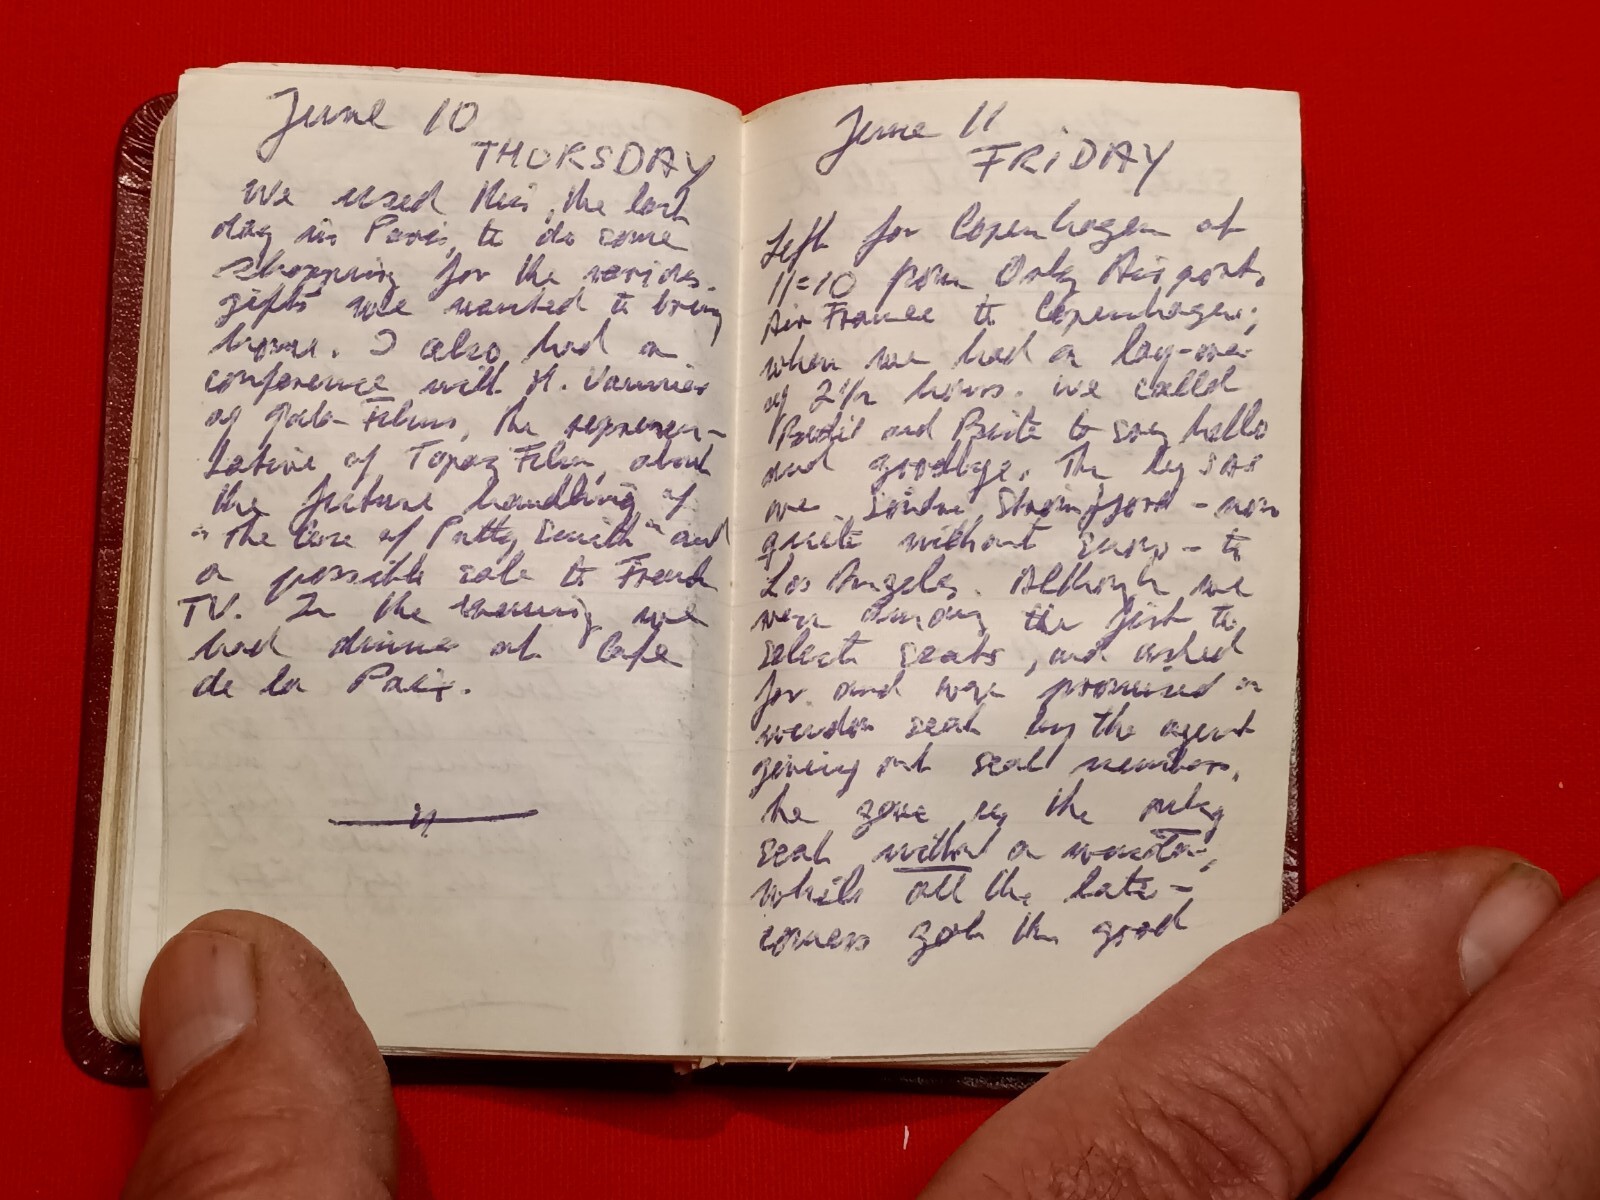 June 10
THURSDAY
We used this, the last
day in Paris, to do some
shopping for the various
gifts we wanted to bring
home. I also had a
conference with M. Vannier
of Gala-Films, the represen-
tative of Topaz Film, about
the future handling of
"The Case of Patty Smith" and
a possible sale to French
TV. In the evening we
had dinner at Cafe
de la Paix.
June 11
FRIDAY
Left for Copenhagen at
11=10 from Orly Airport,
Air France to Copenhagen,
when we had a lay-over
of 2 1/2 hours. We called
and to say hello
and goodbye. The leg SAS
over Söndre Strömfjord - now
quite without snow - to
Los Angeles. Although we
were among the first to
select seats, and asked
for and was promised a
window seat by the agent
giving out seat numbers,
he gave us the only
seat without a window,
while all the late-
comers got the good